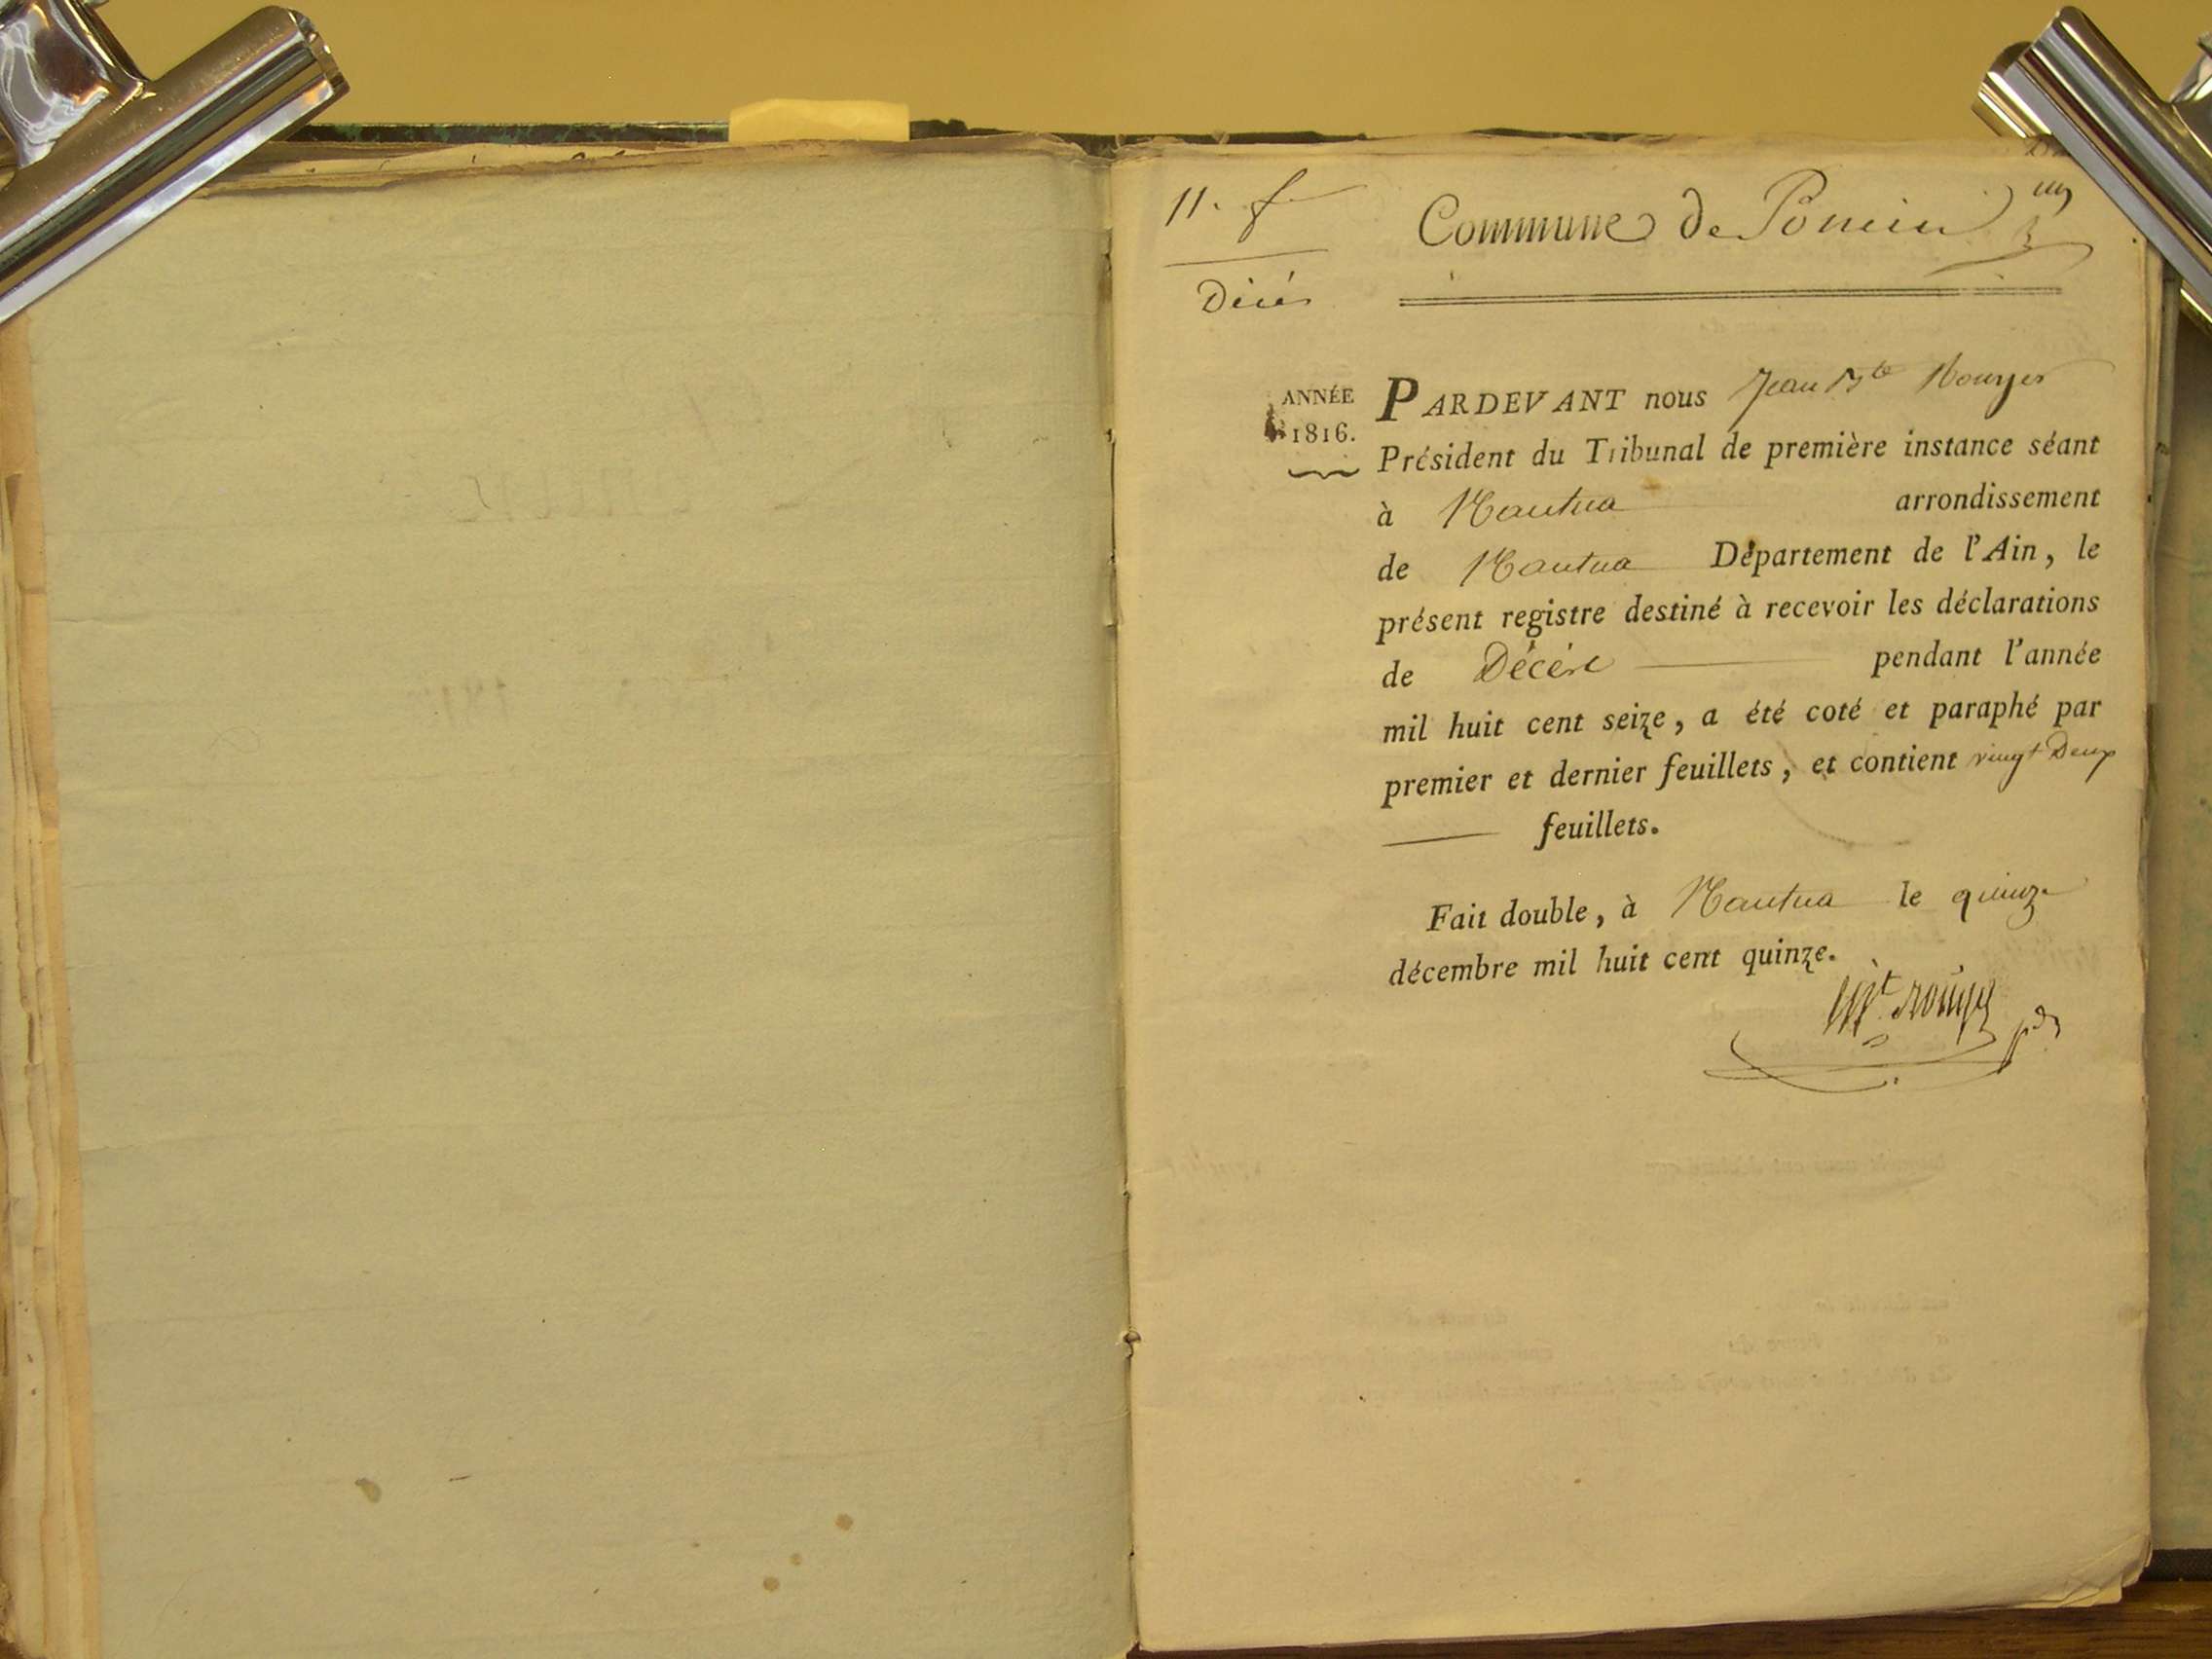 11. f
Commune de Poncin
un
Décès
ANNÉE
1816.
PARDEVANT nous Jean Bte Rouyer
Président du Tribunal de première instance séant
à Nantua arrondissement
de Nantua Département de l'Ain, le
présent registre destiné à recevoir les déclarations
de Décès pendant l'année
mil huit cent seize, a été coté et paraphé par
premier et dernier feuillets, et contient vingt Deux
feuillets.
Fait double, à Nantua le quinze
décembre mil huit cent quinze.